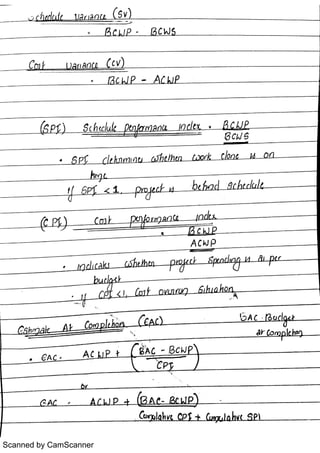 Schedule Variance (SV)
- BCWP - BCWS
Cost Variance (CV)
- BCWP - ACWP
(SPI) Schedule Performance index • BCWP
BCWS
• SPI determines whether work done is on
time
If SPI < 1, project is behind schedule
(CPI) Cost performance index
• BCWP
ACWP
• indicates whether project spending is as per
budget
- If CPI <1, Cost overrun Situation
Estimate At Completion (EAC) BAC - Budget
at Completion
• EAC - ACWP + (BAC - BCWP)
CPI
Or
EAC - ACWP + (BAC - BCWP)
Cumulative CPI + Cumulative SPI
Scanned by CamScanner